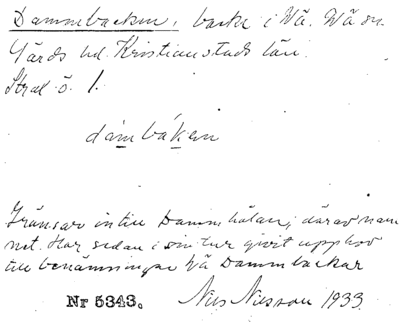 Dammbacken, backe i Vä. Vä sn.
Gärds hd. Kristianstads län.
Strax ö. 1.
dambáken
Gränsar intill Dammhålan, därav nam
net. Har sedan i sin tur givit upphov
till benämningen Vä Dammbackar
Nr 5343. Nils Nilsson 1933.